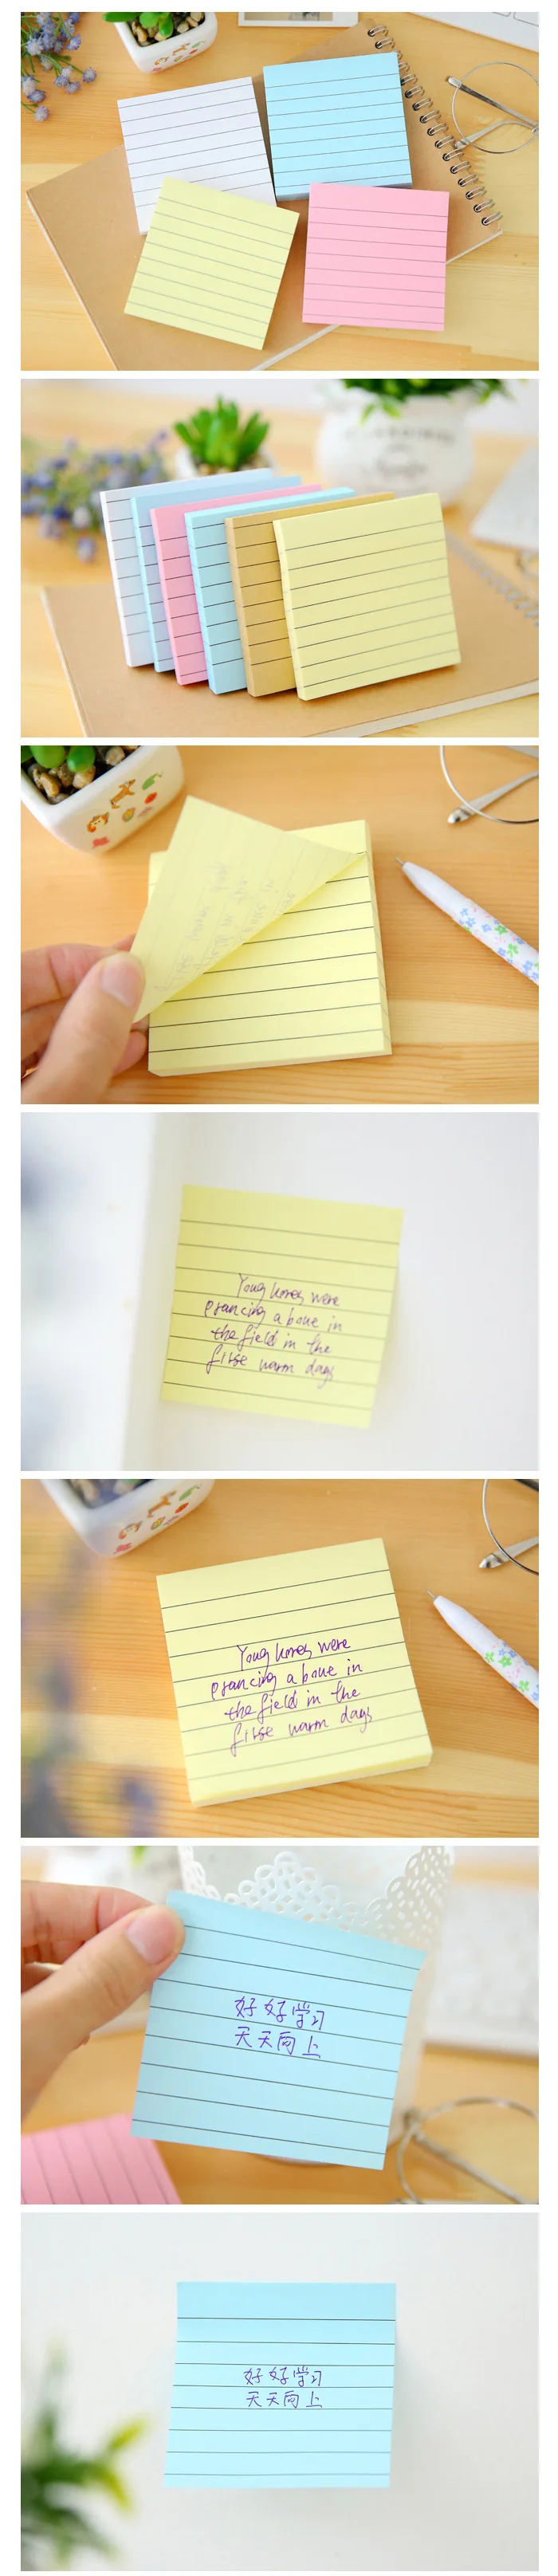 Young horses were
prancing above in
the field in the
first warm days
Young horses were
prancing above in
the field in the
first warm days
好好学习
天天向上
好好学习
天天向上